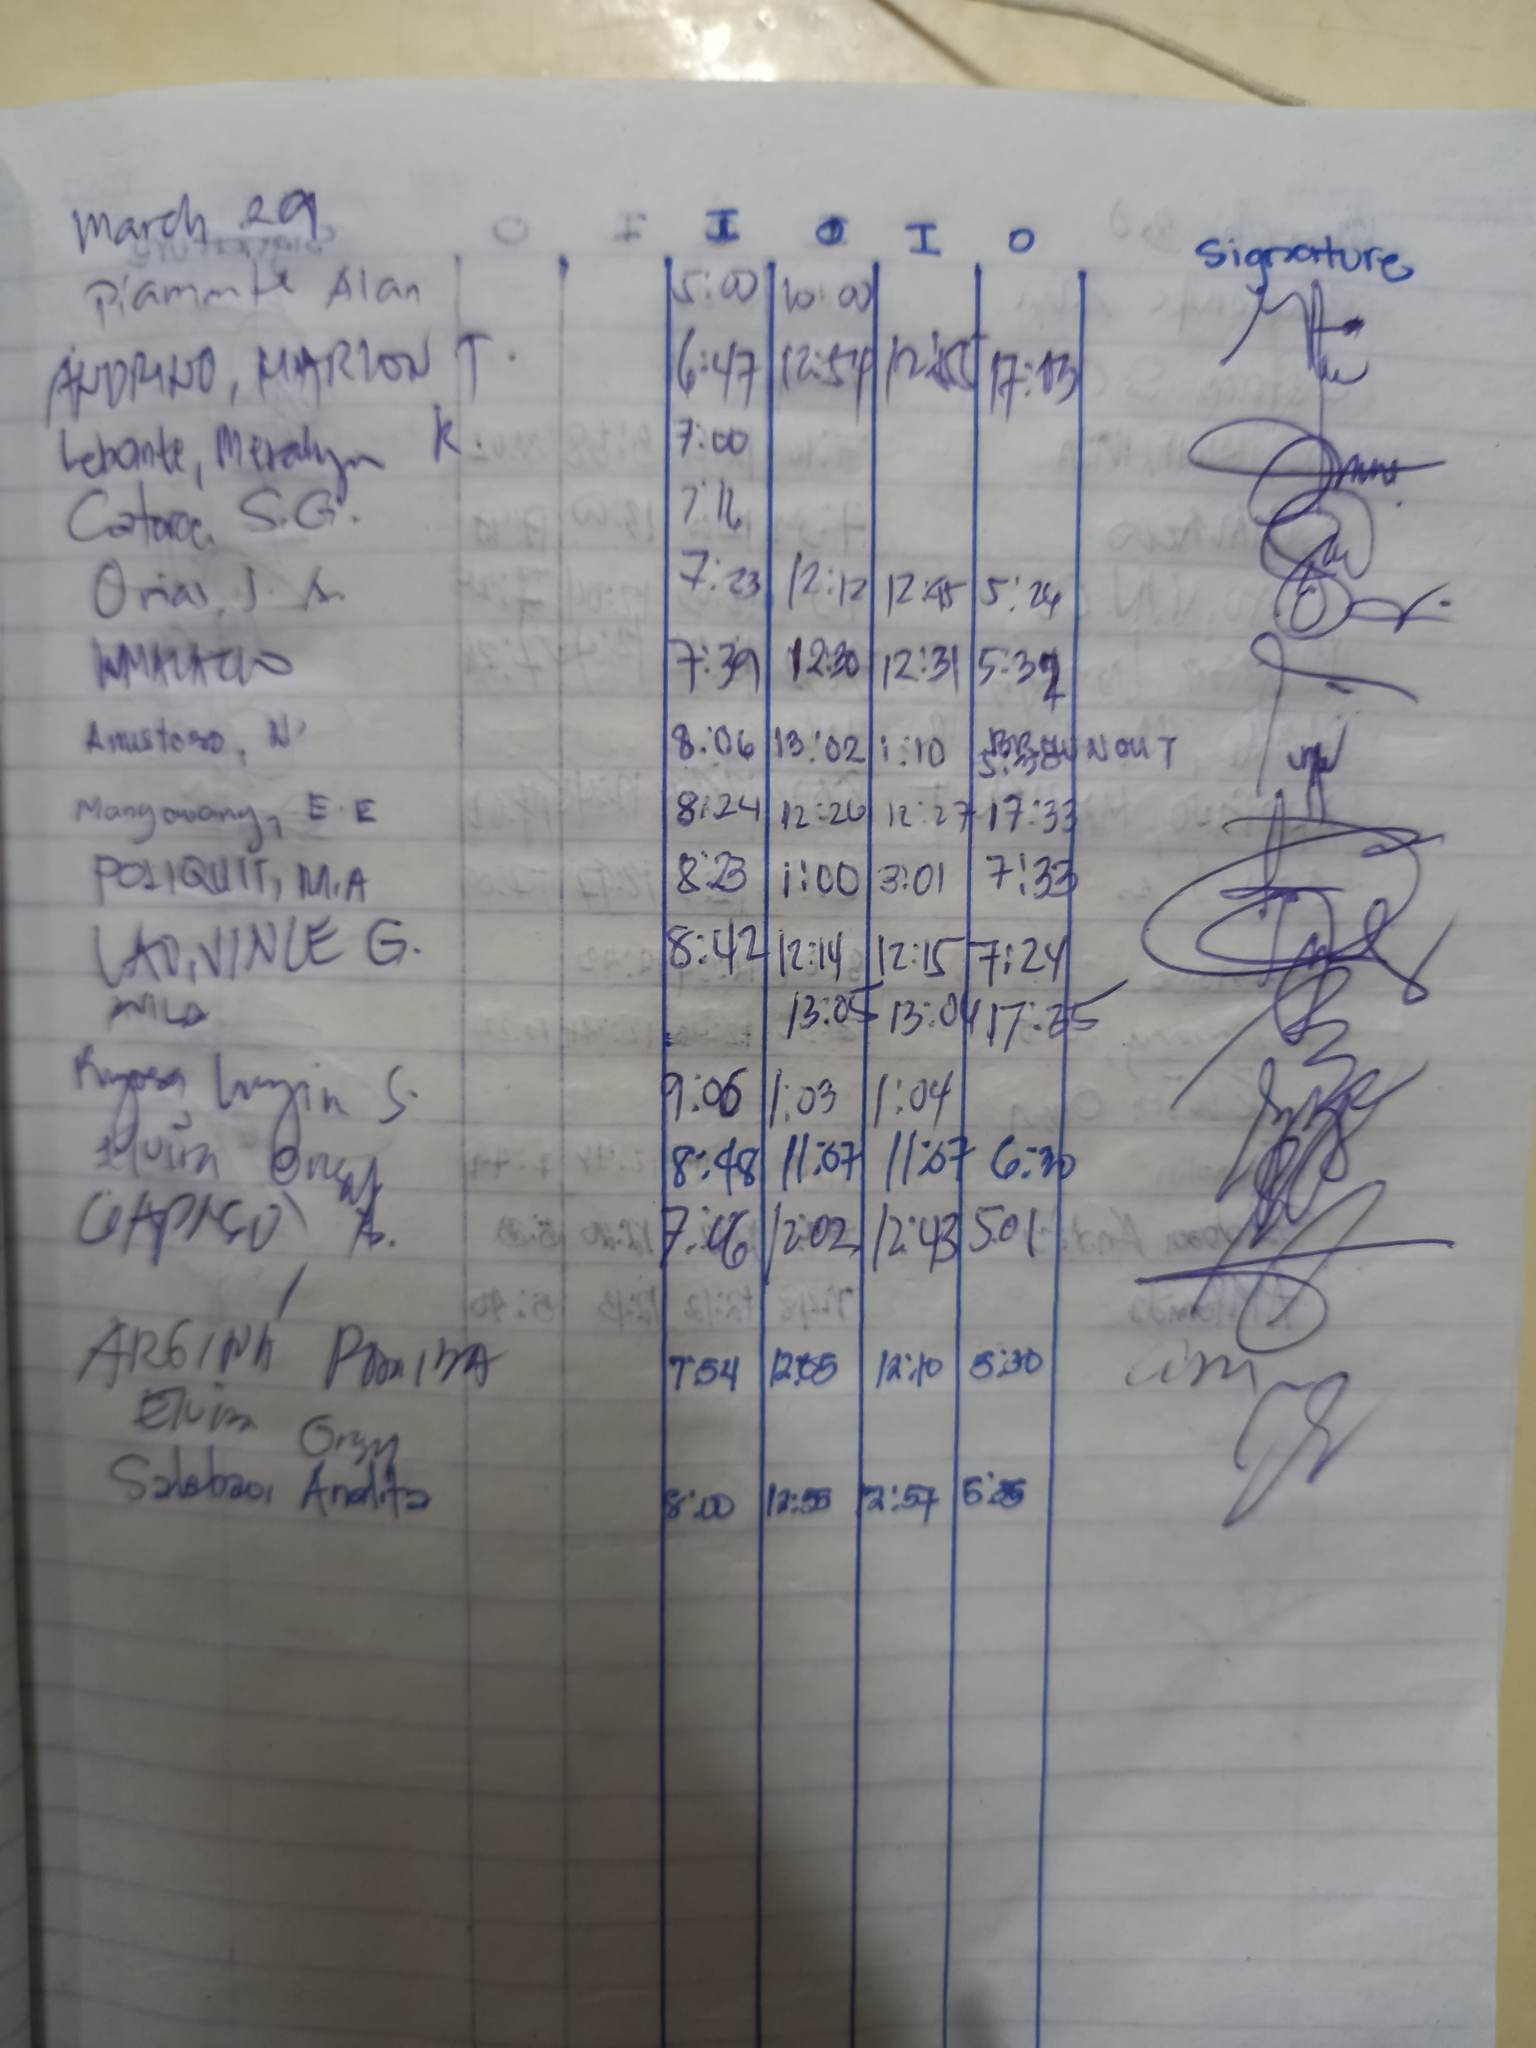 March 29 I O I O Signature
Piamonte Alan 5:00 10:00
ANDRINO, MARLON T. 6:47 12:54 17:13
Lebante, Meralyn K. 7:00
S.G. 7:16
Orias, J. A. 7:23 12:12 12:45 5:24
7:39 12:30 12:31 5:39
Amustoso, N. 8:06 13:02 1:10 BROWNOUT
5:30
Mangowang, E.E 8:24 12:26 12:27 17:33
POLIQUIT, M.A 8:23 1:00 3:01 7:33
LAO, VINCE G. 8:42 12:14 12:15 7:24
13:05 13:04 17:35
S. 9:06 1:03 1:04
Elvin 8:48 11:07 11:07 6:30
A. 7:06 12:02 12:43 5:01
7:54 12:05 12:10 5:30
Elvin
Salabao, Anelita 8:00 12:56 12:57